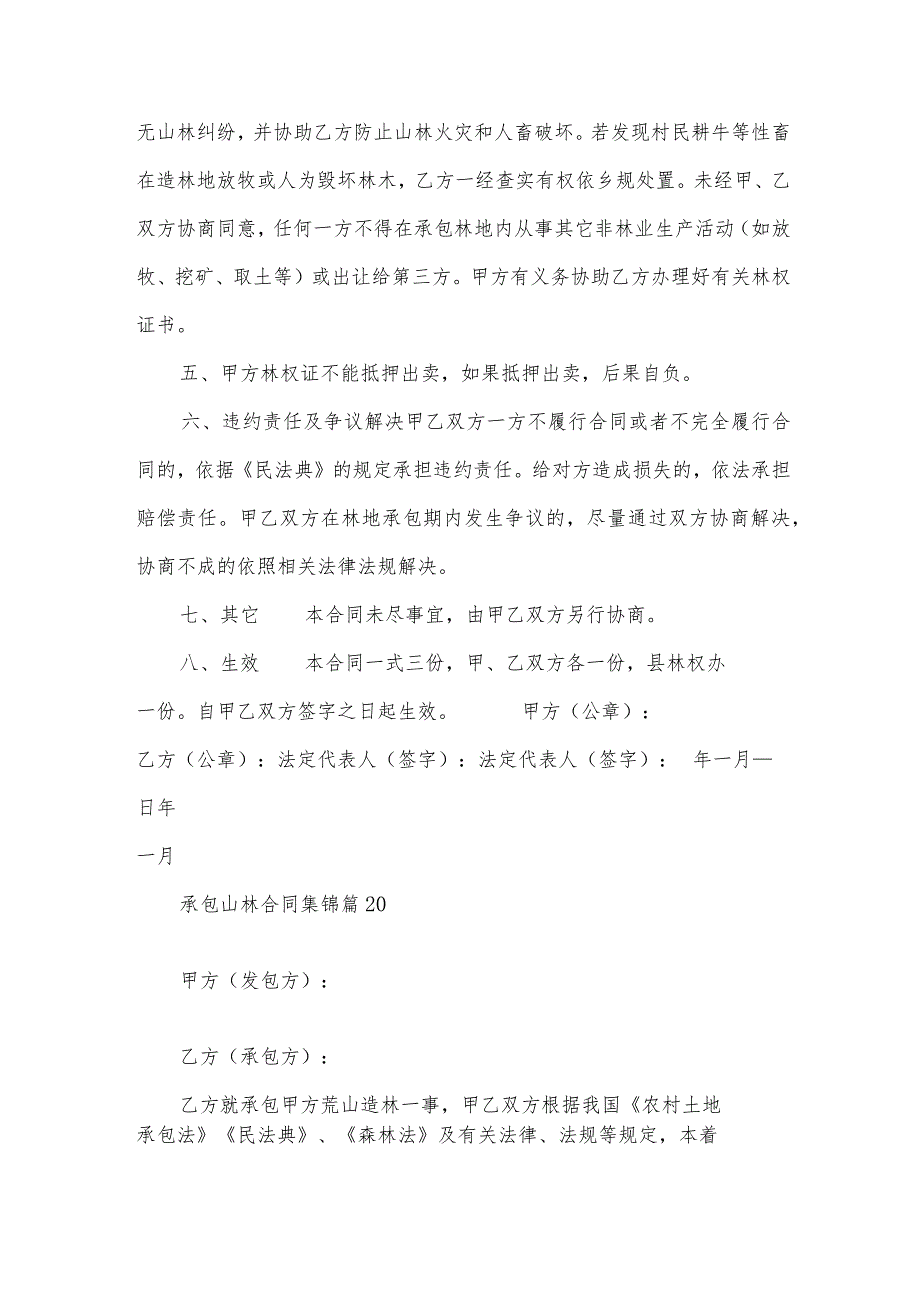 无山林纠纷，并协助乙方防止山林火灾和人畜破坏。若发现村民耕牛等性畜
在造林地放牧或人为毁坏林木，乙方一经查实有权依乡规处置。未经甲、乙
双方协商同意，任何一方不得在承包林地内从事其它非林业生产活动（如放
牧、挖矿、取土等）或出让给第三方。甲方有义务协助乙方办理好有关林权
证书。
五、甲方林权证不能抵押出卖，如果抵押出卖，后果自负。
六、违约责任及争议解决甲乙双方一方不履行合同或者不完全履行合
同的，依据《民法典》的规定承担违约责任。给对方造成损失的，依法承担
赔偿责任。甲乙双方在林地承包期内发生争议的，尽量通过双方协商解决，
协商不成的依照相关法律法规解决。
七、其它 本合同未尽事宜，由甲乙双方另行协商。
八、生效 本合同一式三份，甲、乙双方各一份，县林权办
一份。自甲乙双方签字之日起生效。 甲方（公章）：
乙方（公章）：法定代表人（签字）：法定代表人（签字）： 年一月—
日年
一月
承包山林合同集锦篇20
甲方（发包方）：
乙方（承包方）：
乙方就承包甲方荒山造林一事，甲乙双方根据我国《农村土地
承包法》《民法典》、《森林法》及有关法律、法规等规定，本着